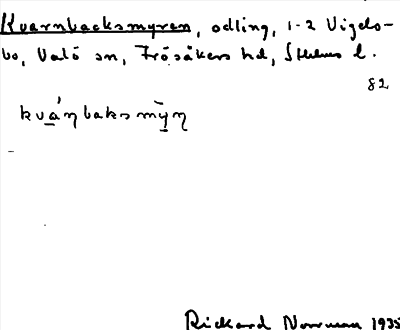 Kvarnbacksmyren, odling, 1-2 Vigels-
bo, Valö sn, Frösåkers hd, Sthlms l.
82
kvá̱ɳbaksmỳ̱ɳ
Rickard Norrman 1935